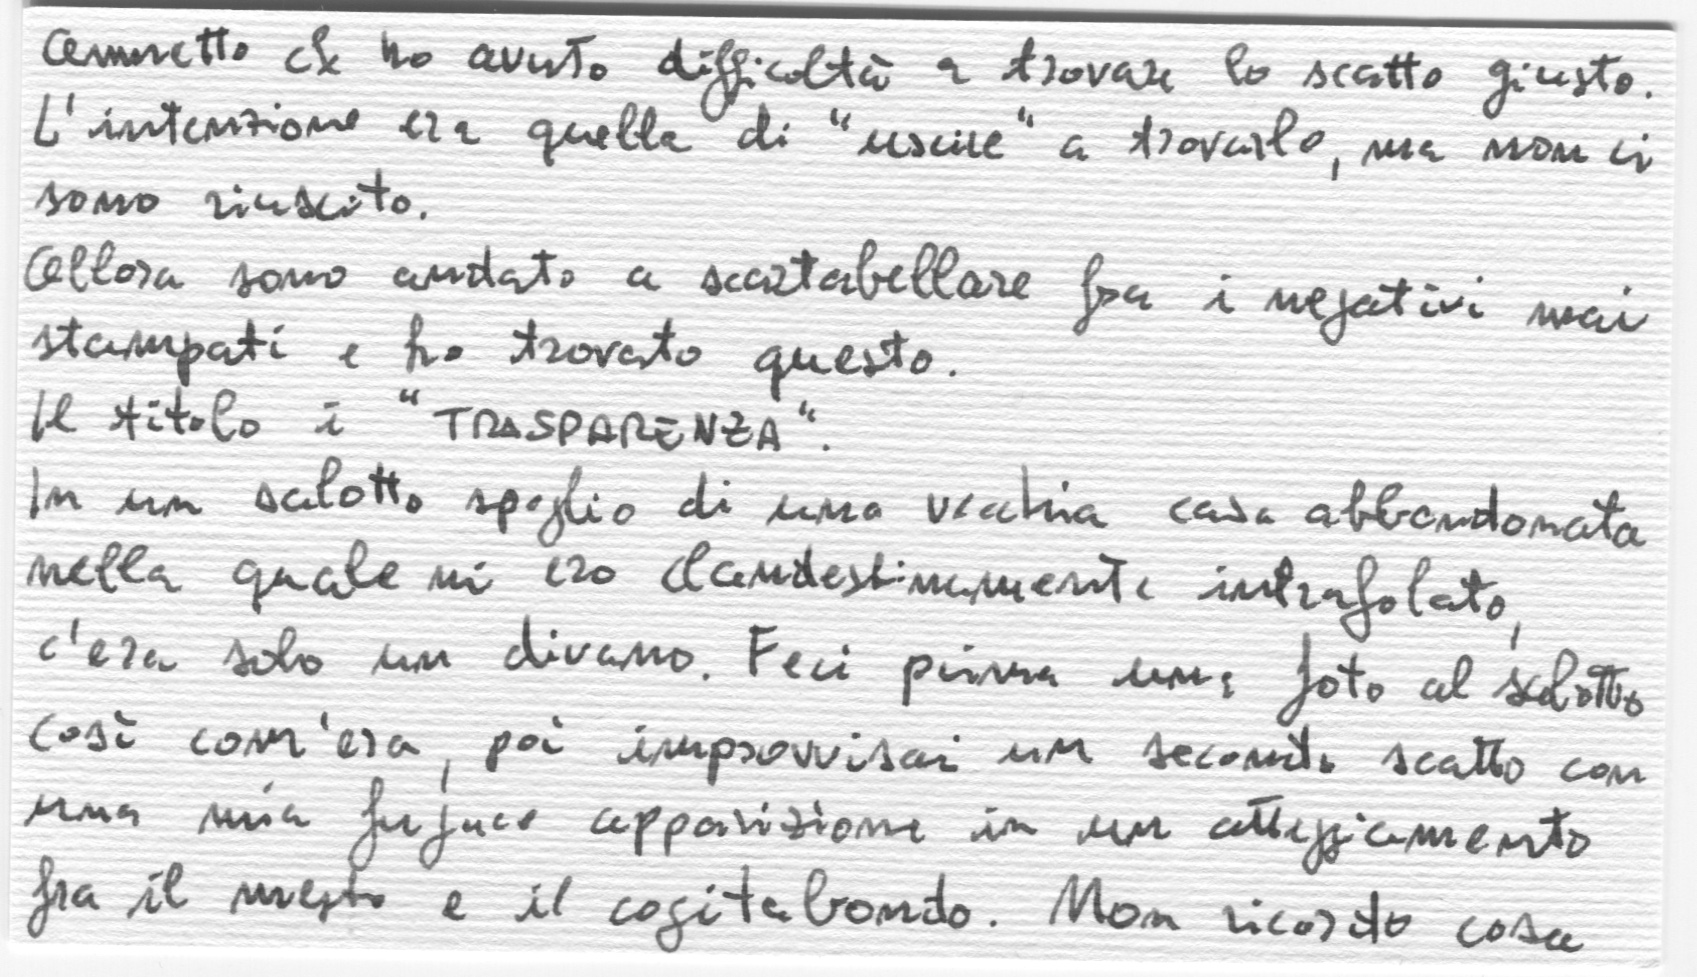 Ammetto che ho avuto difficoltà a trovare lo scatto giusto.
L'intenzione era quella di "uscire" a trovarlo, ma non ci
sono riuscito.
Allora sono andato a scartabellare fra i negativi mai
stampati e ho trovato questo.
Il titolo è "TRASPARENZA".
In un salotto spoglio di una vecchia casa abbandonata
nella quale mi ero clandestinamente intrafolato,
c'era solo un divano. Feci prima una foto al salotto
così com'era, poi improvvisai un secondo scatto con
una mia fugace apparizione in un atteggiamento
fra il mesto e il cogitabondo. Non ricordo cosa